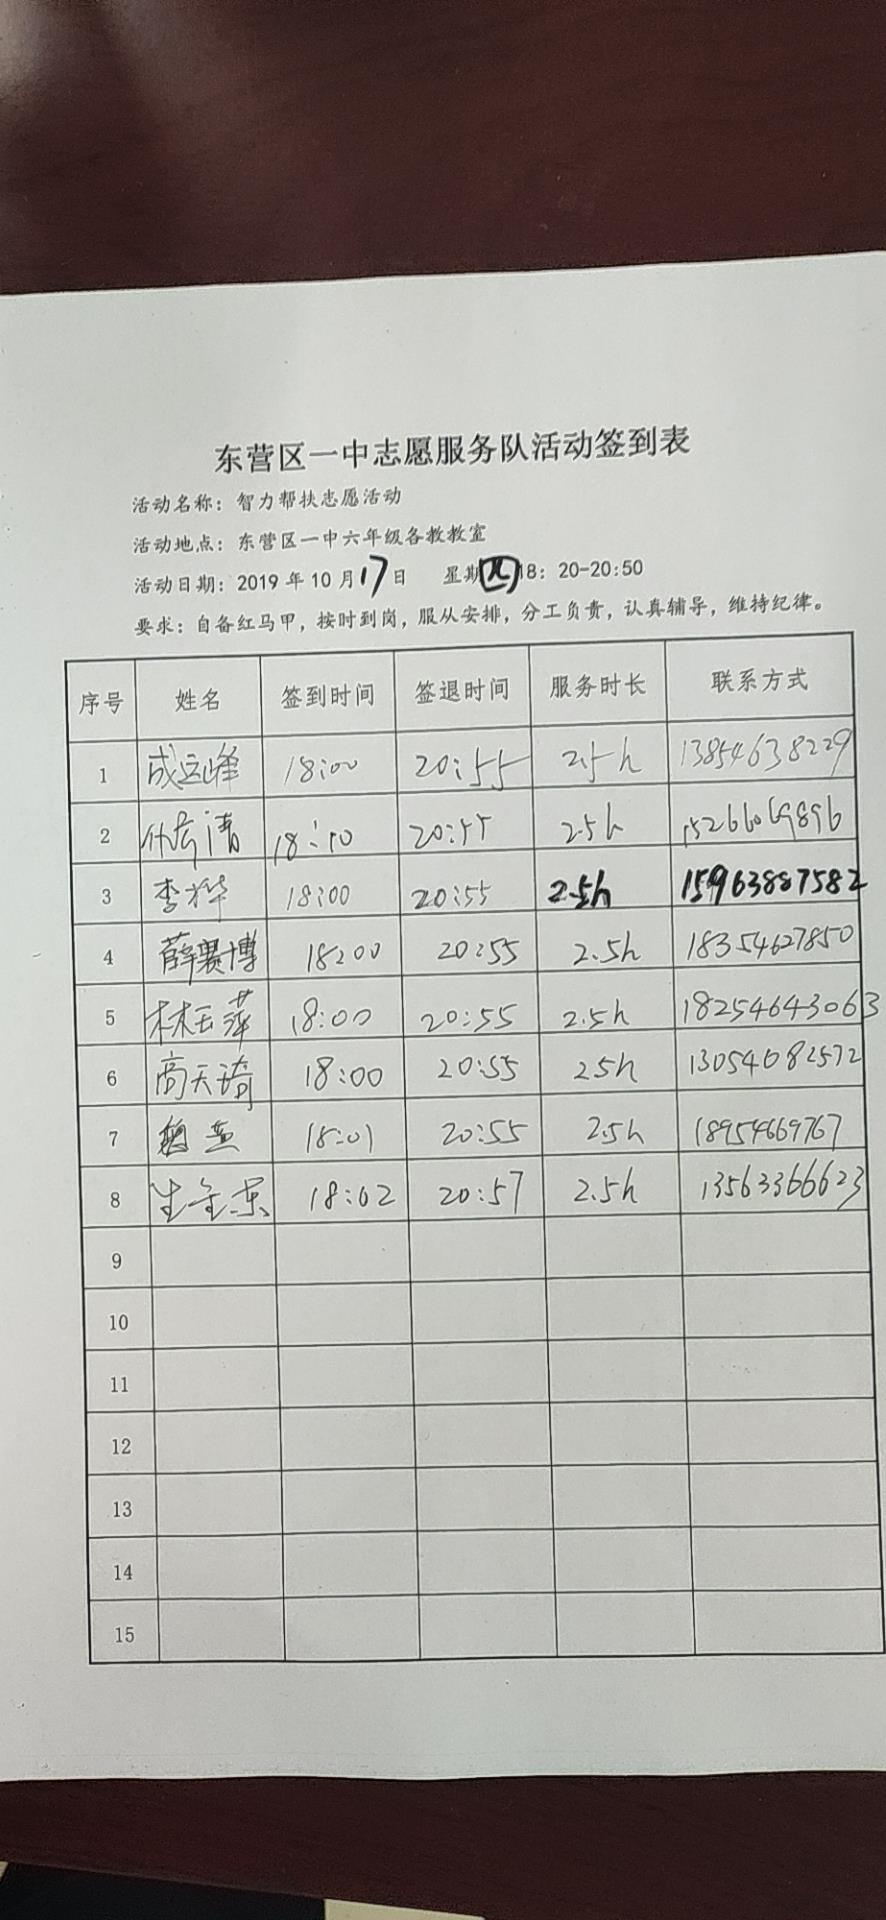 东营区一中志愿服务队活动签到表
活动名称：智力帮扶志愿活动
活动地点：东营区一中六年级各教教室
活动日期：2019年10月17日 星期四18：20-20:50
要求：自备红马甲，按时到岗，服从安排，分工负责，认真辅导，维持纪律。
序号 姓名 签到时间 签退时间 服务时长 联系方式
1 成远峰 18:00 20:55 2.5h 13854638229
2 清 18:10 20:55 2.5h 15266069896
3 李桦 18:00 20:55 2.5h 15963887582
4 薛赛博 18:00 20:55 2.5h 18354627850
5 林玉萍 18:00 20:55 2.5h 18254643063
6 高天琦 18:00 20:55 2.5h 13054682572
7 18:01 20:55 2.5h 18954669767
8 生金东 18:02 20:57 2.5h 13563366623
9
10
11
12
13
14
15